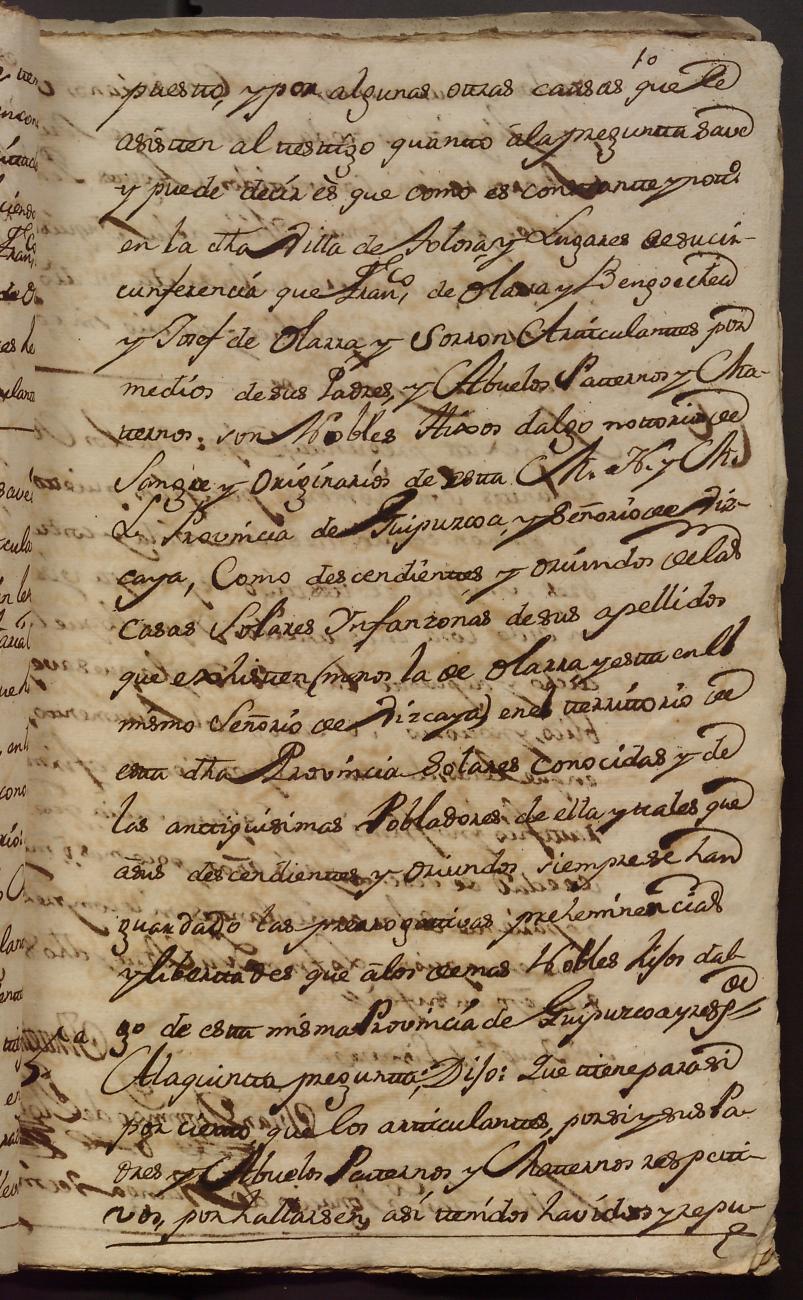 10
puestto, y por algunas ottras causas que le
asistten al testtigo quantto â la pregunta save
y puede decir ês que como es constantte y nott.º
en la dha Villa de Tolosa, y Lugares de su cir-
cunferencia que Fran.co de Olarra y Bengoechea
y Josef de Olarra y Sorron Artticulanttes por
medios de sus Padres, y Abuelos Patternos y Ma-
tternos, son Nobles Hixos dalgo nottorios de
Sangre y Originarios de estta M. N. y M.
L. Provincia de Guipuzcoa, y Señorio de Viz-
caya, Como descendienttes y oriundos de las
Casas Solares Ynfanzonas de sus apellidos
que exhistten (menos la de Olarra y estta en el
mismo Señorio de Vizcaya) en el tterrittorio de
estta dha Provincia Solares conocidas y de
las anttiquisimas Pobladores de ella, y ttales que
a sus descendienttes y oriundos siempre se han
guardado las prerrogattivas, preheminencias
y liberttades que â los demas Nobles hijos dal-
go de estta misma Provincia de Guipuzcoa y resp.de
5.ª
A la quintta preguntta, Dijo: Que ttiene para si
por ciertto, que los artticulanttes, por si y sus Pa-
dres y Abuelos Patternos y Matternos respectti-
vos, por hallarse, asi ttenidos havidos y repu-